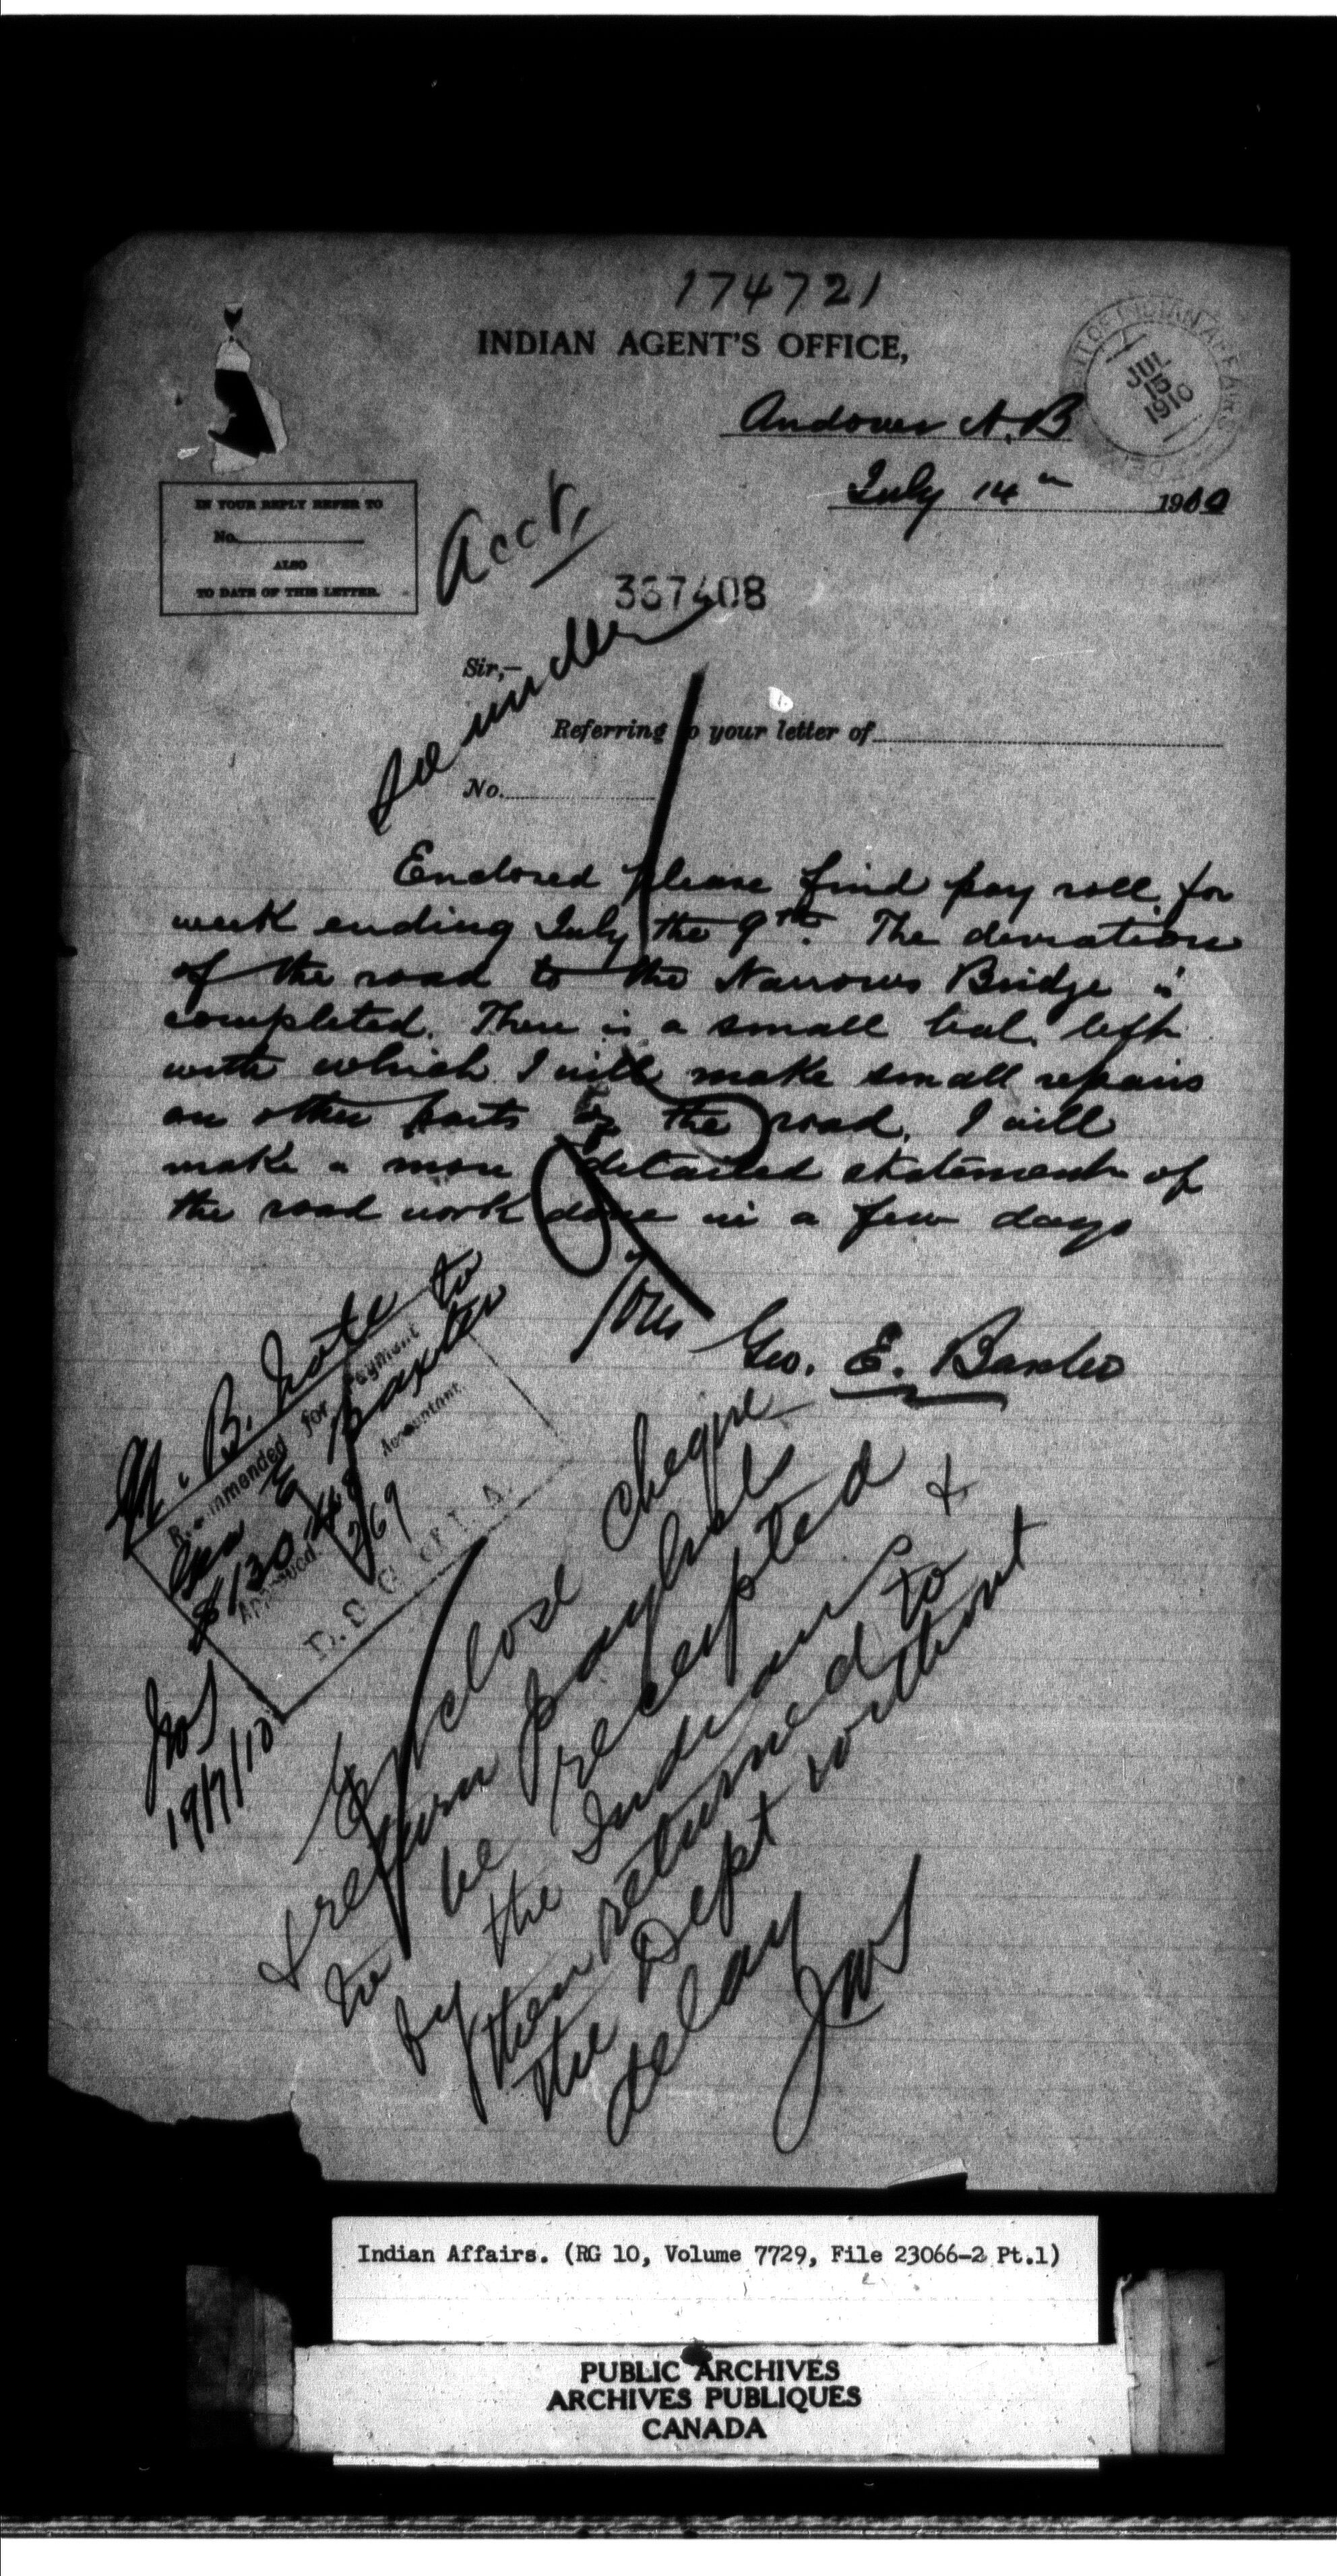 174721
INDIAN AGENT'S OFFICE,
DEPT OF INDIAN AFFAIRS
JUL
15
1910
Andover N.B
July 14th 1910
IN YOUR REPLY REFER TO
No.
ALSO
TO DATE OF THIS LETTER.
Acct.
367408
Sir,—
See under
Referring to your letter of
No.
Enclosed please find pay roll for
week ending July the 9th. The deviation
of the road to the Narrows Bridge is
completed. There is a small bal. left
with which I will make small repairs
on other parts of the road. I will
make a more detailed statement of
the road work done in a few days
Yours
Geo. E. Baxter
N. B. Vote to
Recommended for Payment
Geo E Baxter
Accountant.
$130
Approved.
269
D. S. G. of I. A.
19/7/10
Enclose cheque
& return paylist
to be receipted
by the Indians &
then returned to
the Dept without
delay